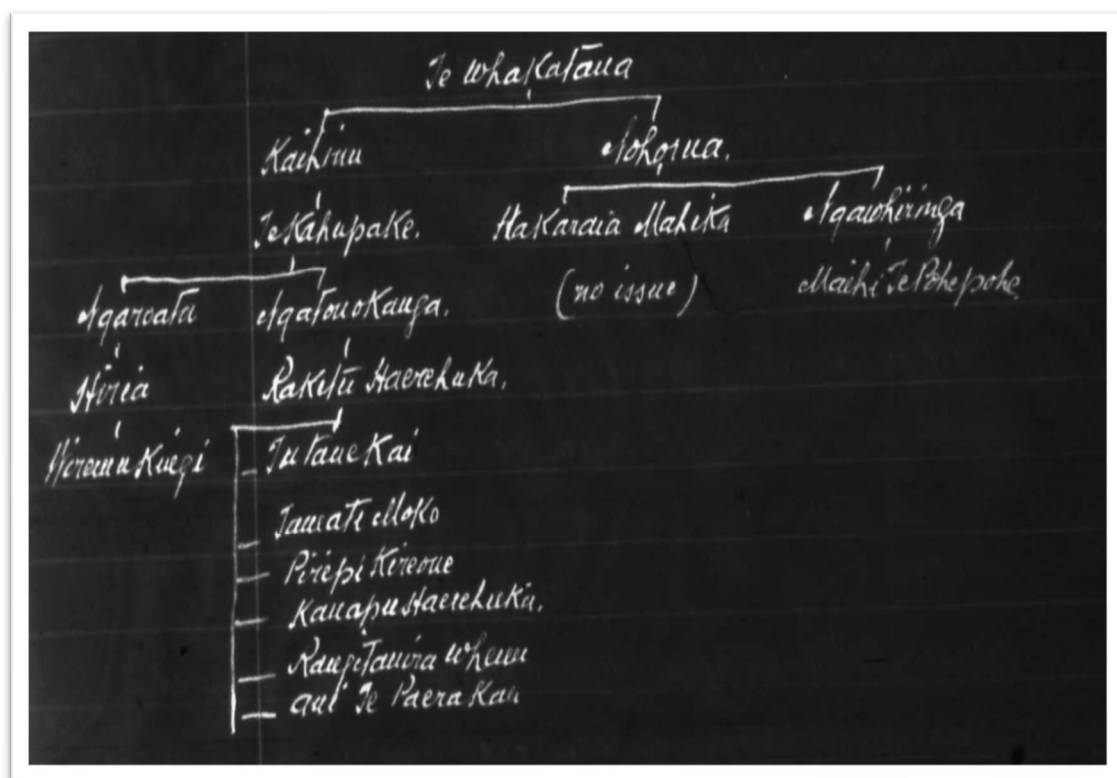 Te Whakatāua
Kaihinu Nohorua.
Te Kahupake. Hakaraia Mahika Ngawhiringa
(no issue) Maihi Te Pohepohe
Ngaroatu Ngatouokauga.
Hiria Raketū Haerehuka.
Wiremu Kingi Tutanekai
Tamati Moko
Pirepi Kireone
Kanapu Haerehuka.
Te Paera Kau